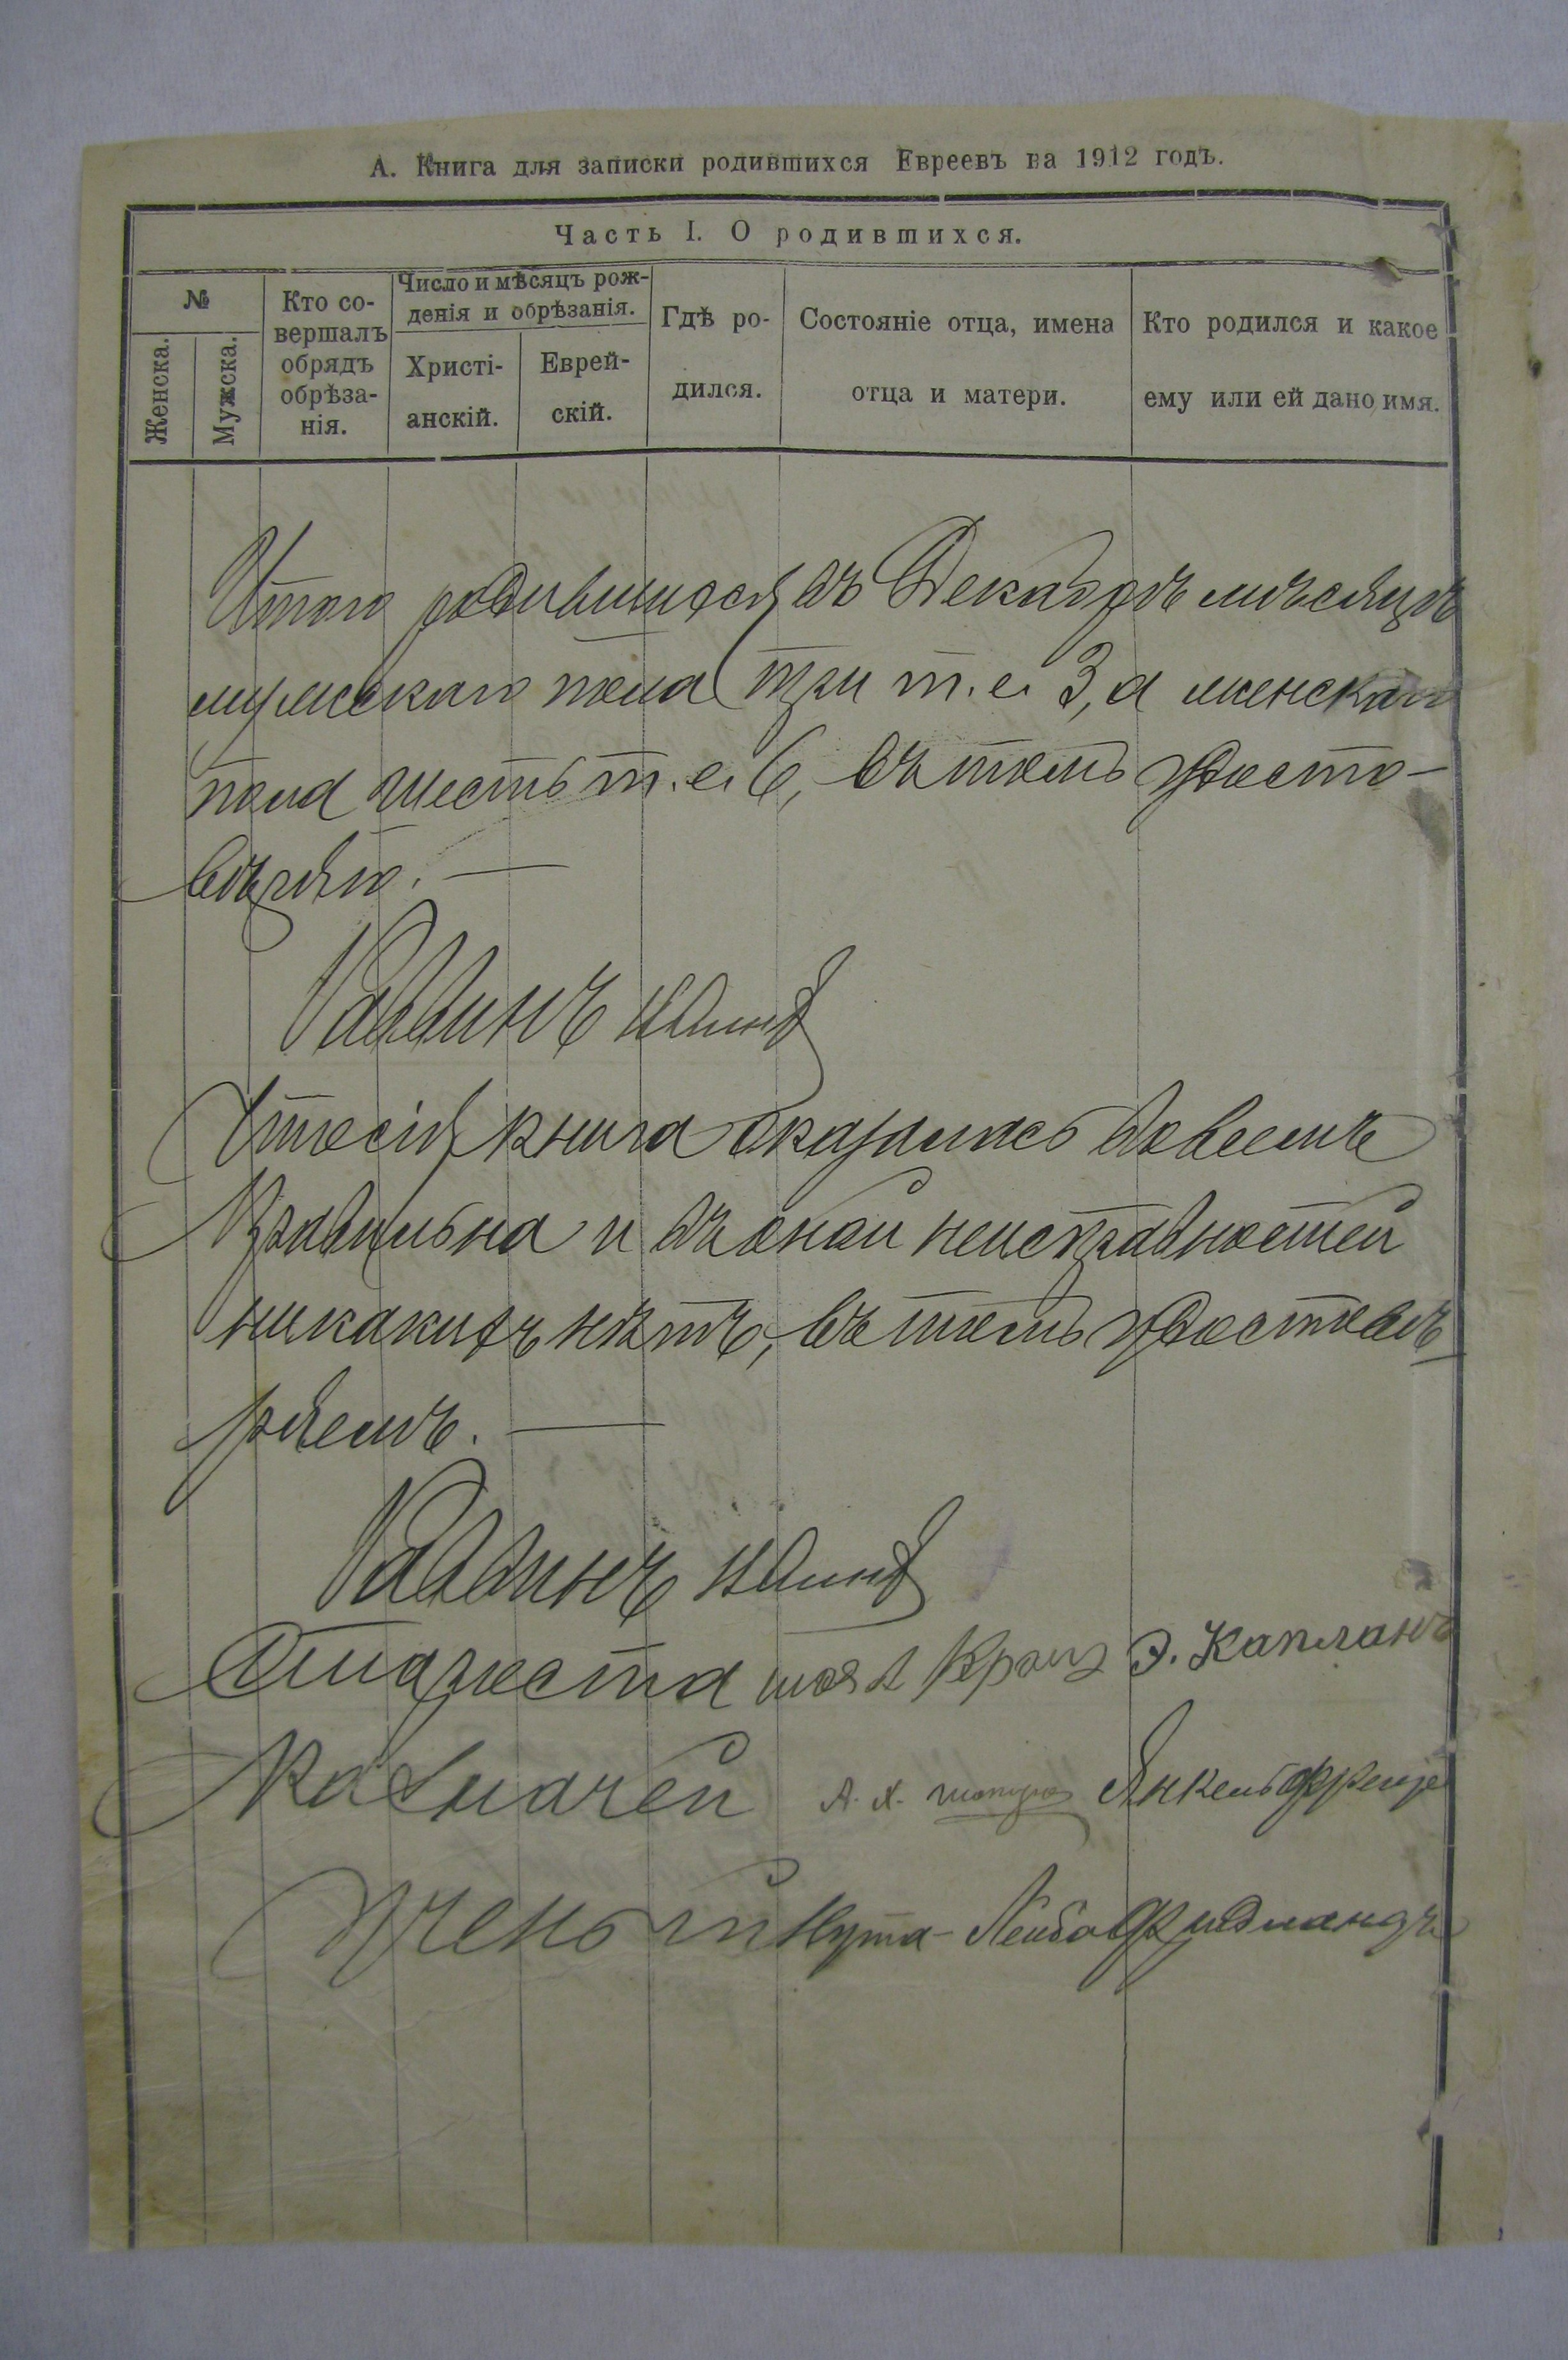 А. Книга для записки родившихся Евреевъ на 1912 годъ.
Часть I. О родившихся.
№
Женска.
Мужска.
Кто со-
вершалъ
обрядъ
обрѣза-
нія.
Число и мѣсяцъ рож-
денія и обрѣзанія.
Христі-
анскій.
Еврей-
скій.
Гдѣ ро-
дился.
Состояніе отца, имена
отца и матери.
Кто родился и какое
ему или ей дано имя.
Итого родившихся въ Декабрѣ мѣсяцѣ
мужскаго пола три т.е. 3, а женскаго
пола шесть т.е. 6, въ томъ удосто-
вѣряю. —
Раввинъ
Что сія книга оказалась во всемъ
правильна и въ оной неисправностей
никакихъ нѣтъ, въ томъ удостовѣ-
ряемъ. —
Раввинъ
Староста Э. Капланъ
Казначей А. Х. Янкель
Ученый Нута-Лейба Фридландъ